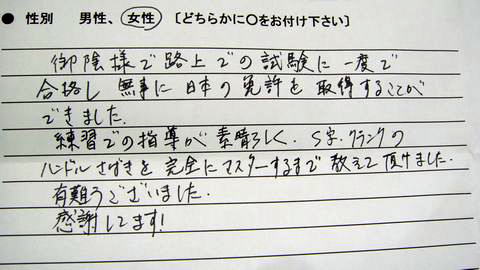 ● 性別　男性、女性　〔どちらかに○をお付け下さい〕
御陰様で路上での試験に一度で
合格し 無事に 日本の免許を 取得することが
できました.
練習での指導が素晴らしく、S字、クランクの
ハンドルさばきを 完全にマスターするまで 教えて頂けました.
有難うございました.
感謝してます!